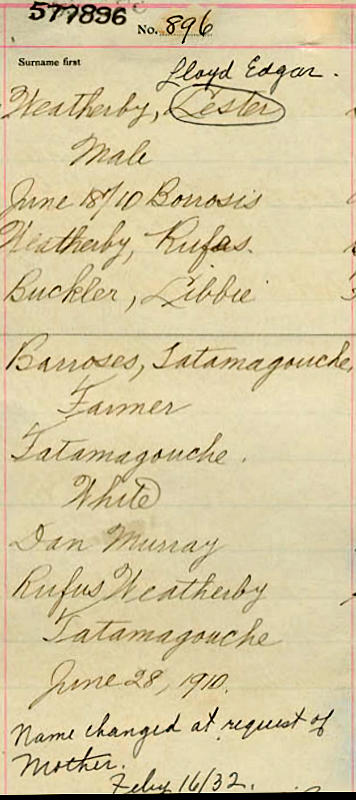 577896
No. 896
Surname first
Lloyd Edgar.
Weatherby, Lester
Male
June 18/10 Borrosis
Weatherby, Rufas.
Buckler, Libbie
Barroses, Tatamagouche,
Farmer
Tatamagouche.
White
Dan Murray
Rufus Weatherby
Tatamagouche
June 28, 1910.
Name changed at request of
Mother.
Feby 16/32.